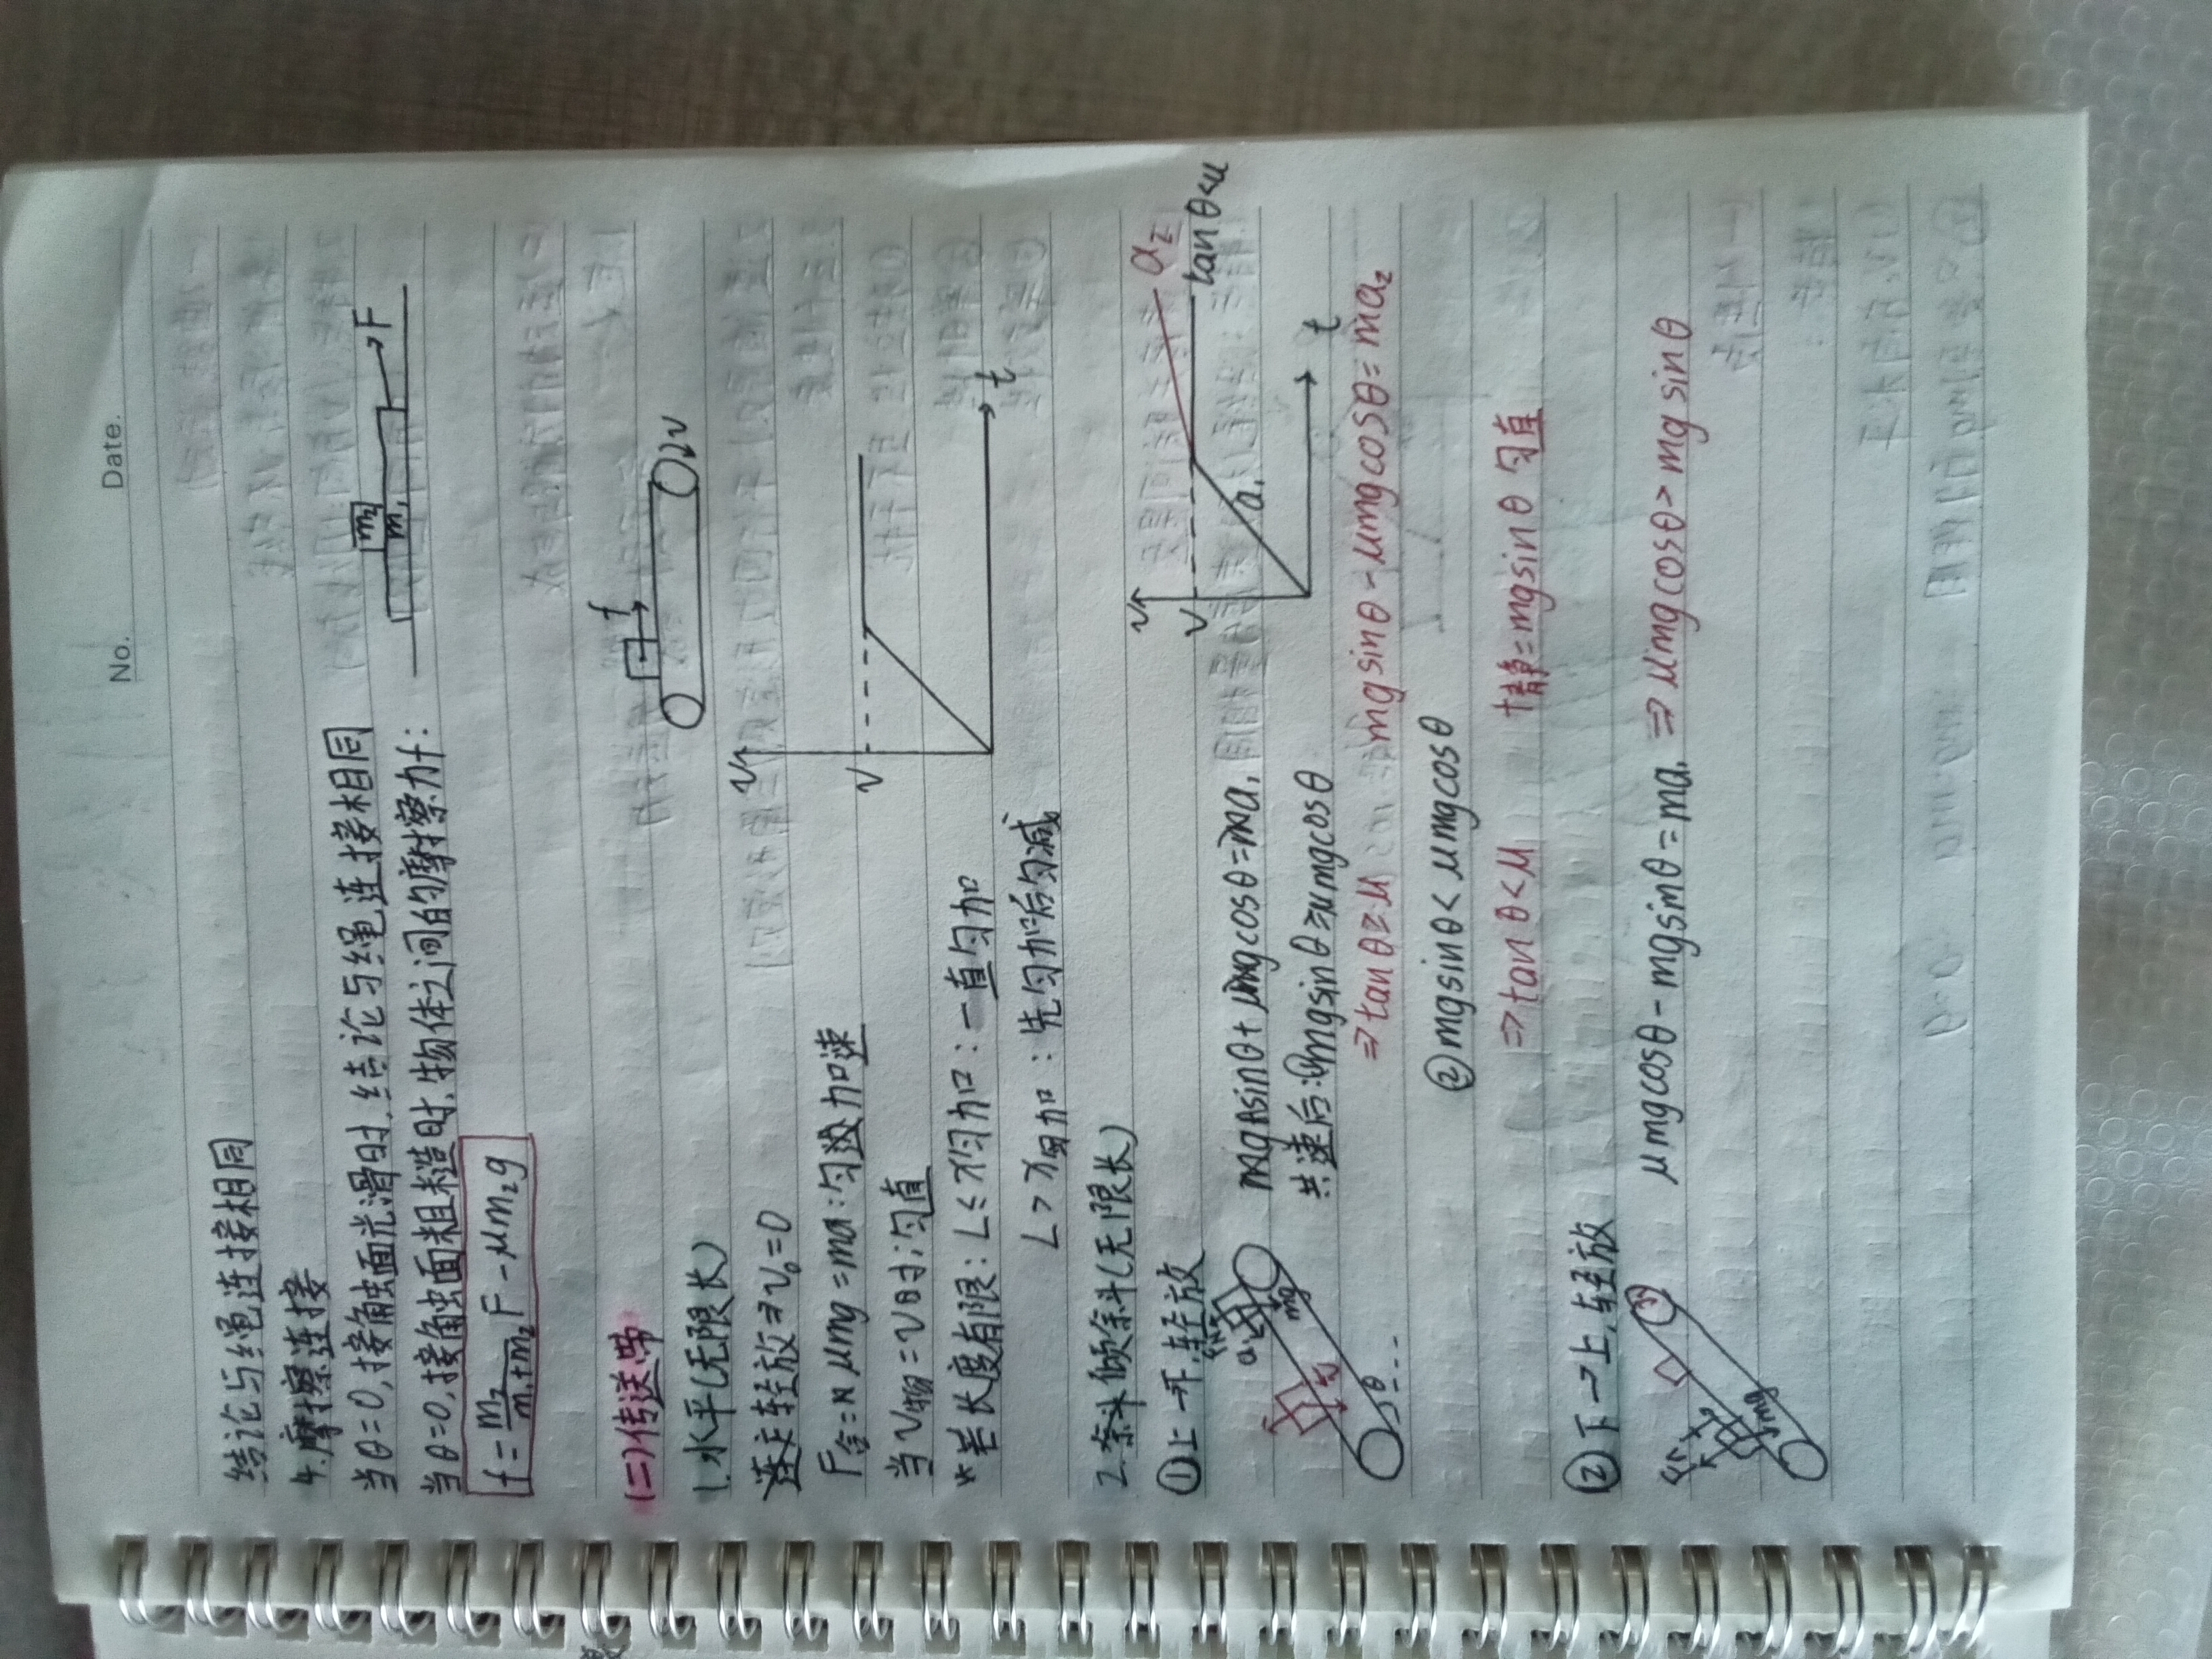 No.
Date.
结论与绳连接相同
4.摩擦连接
当θ=0,接触面光滑时,结论与绳连接相同
当θ=0,接触面粗糙时,物体之间的摩擦力f:
m₂
m₁
F
f=m₂/(m₁+m₂)F-μm₂g
(二)传送带
1.水平(无限长)
轻放⇒v₀=0
f
v
F合=μmg=ma:匀加速
当v物=v时:匀直
v
v
t
*若长度有限:L≤x匀加:一直匀加
L>x匀加:先匀加后匀减
2.倾斜(无限长)
①上→下,轻放
mgsinθ+μmgcosθ=ma₁
共速后:①mgsinθ≥μmgcosθ
⇒tanθ≥μ mgsinθ-μmgcosθ=ma₂
②mgsinθ<μmgcosθ
⇒tanθ<μ f静=mgsinθ 匀直
v
v
a₁
a₂
tanθ<μ
t
mg
θ
②下→上,轻放
μmgcosθ-mgsinθ=ma₁ ⇒μmgcosθ>mgsinθ
mg